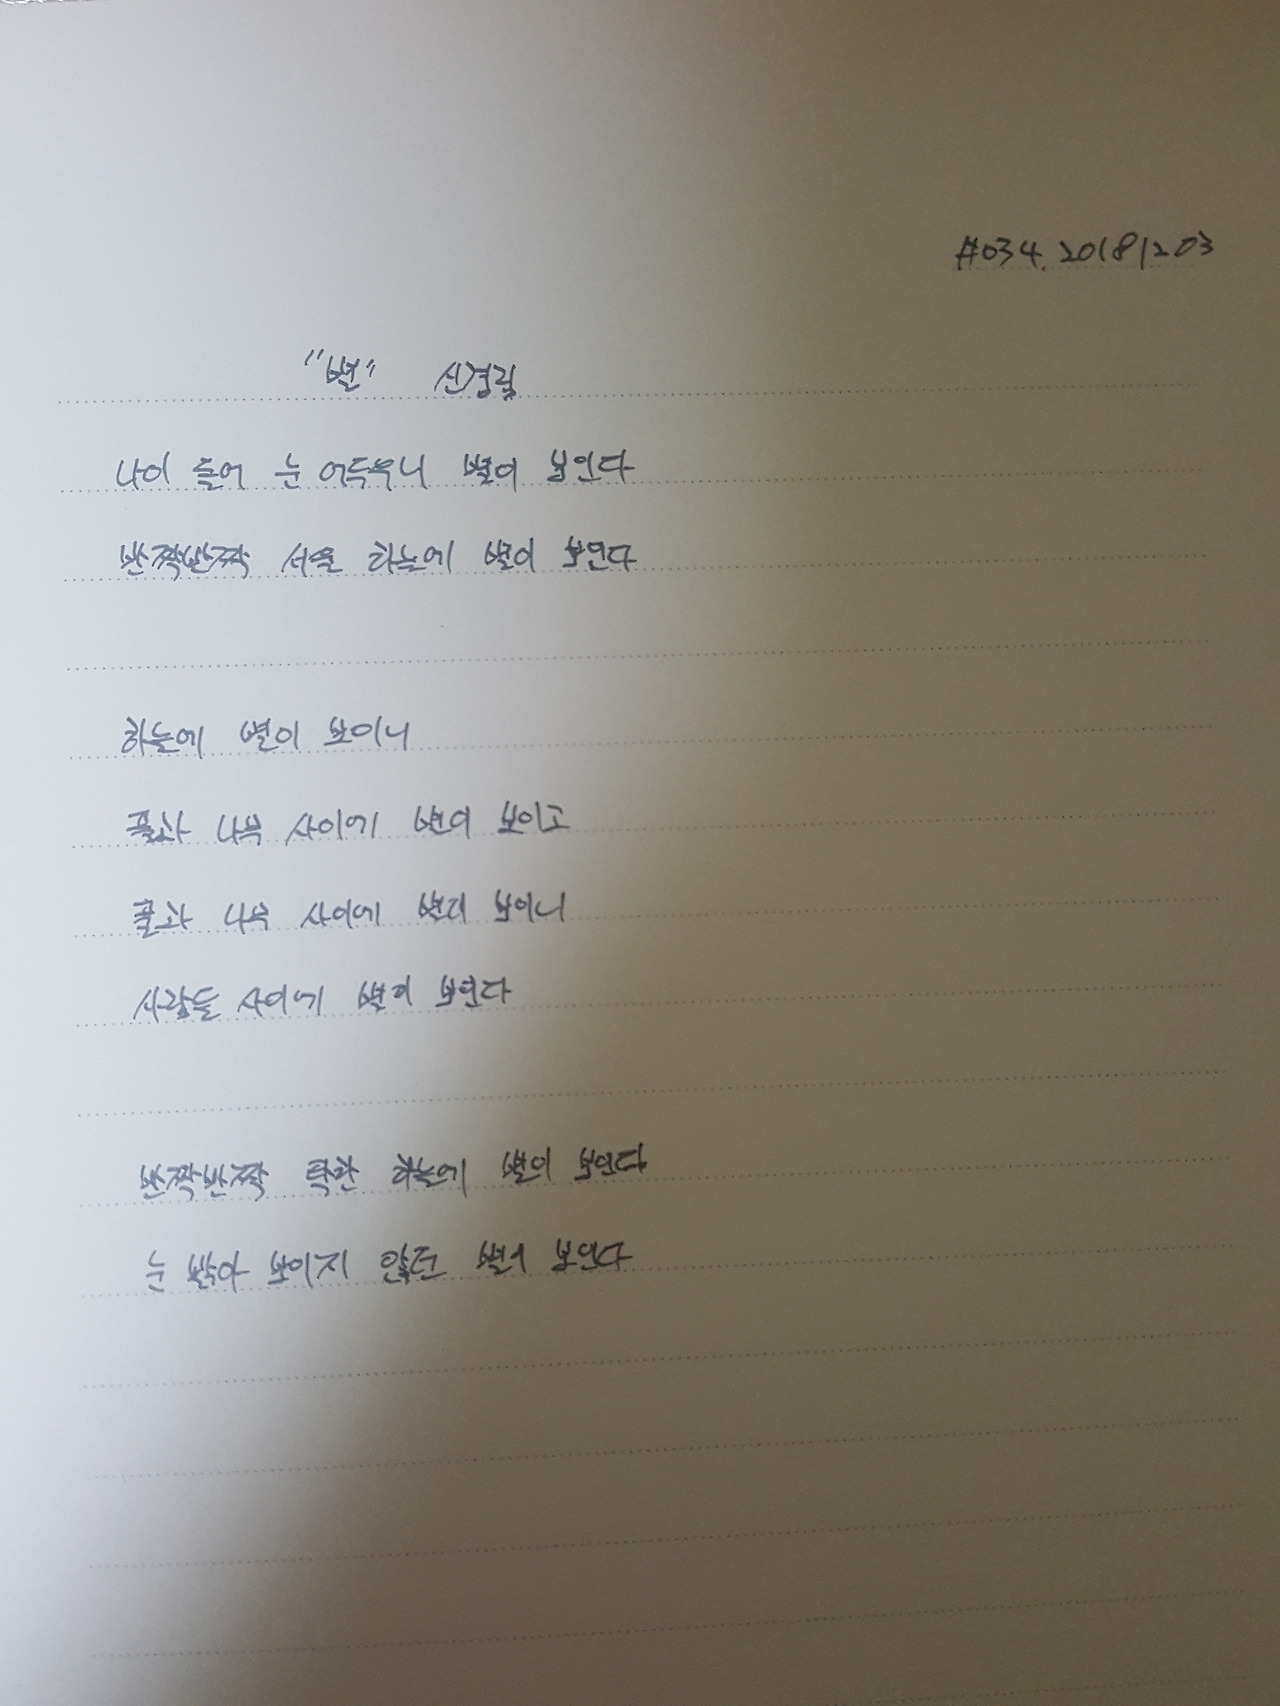 #034. 20181203
"별" 신경림
나이 들어 눈 어두우니 별이 보인다
반짝반짝 서울 하늘에 별이 보인다
하늘에 별이 보이니
풀과 나무 사이에 별이 보이고
풀과 나무 사이에 별이 보이니
사람들 사이에 별이 보인다
반짝반짝 탁한 하늘에 별이 보인다
눈 밝아 보이지 않던 별이 보인다